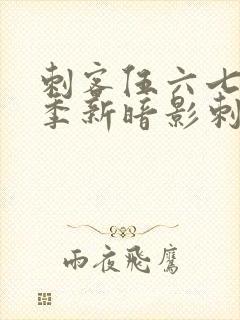 刺客伍六七
季新暗影刺
雨夜飛鷹